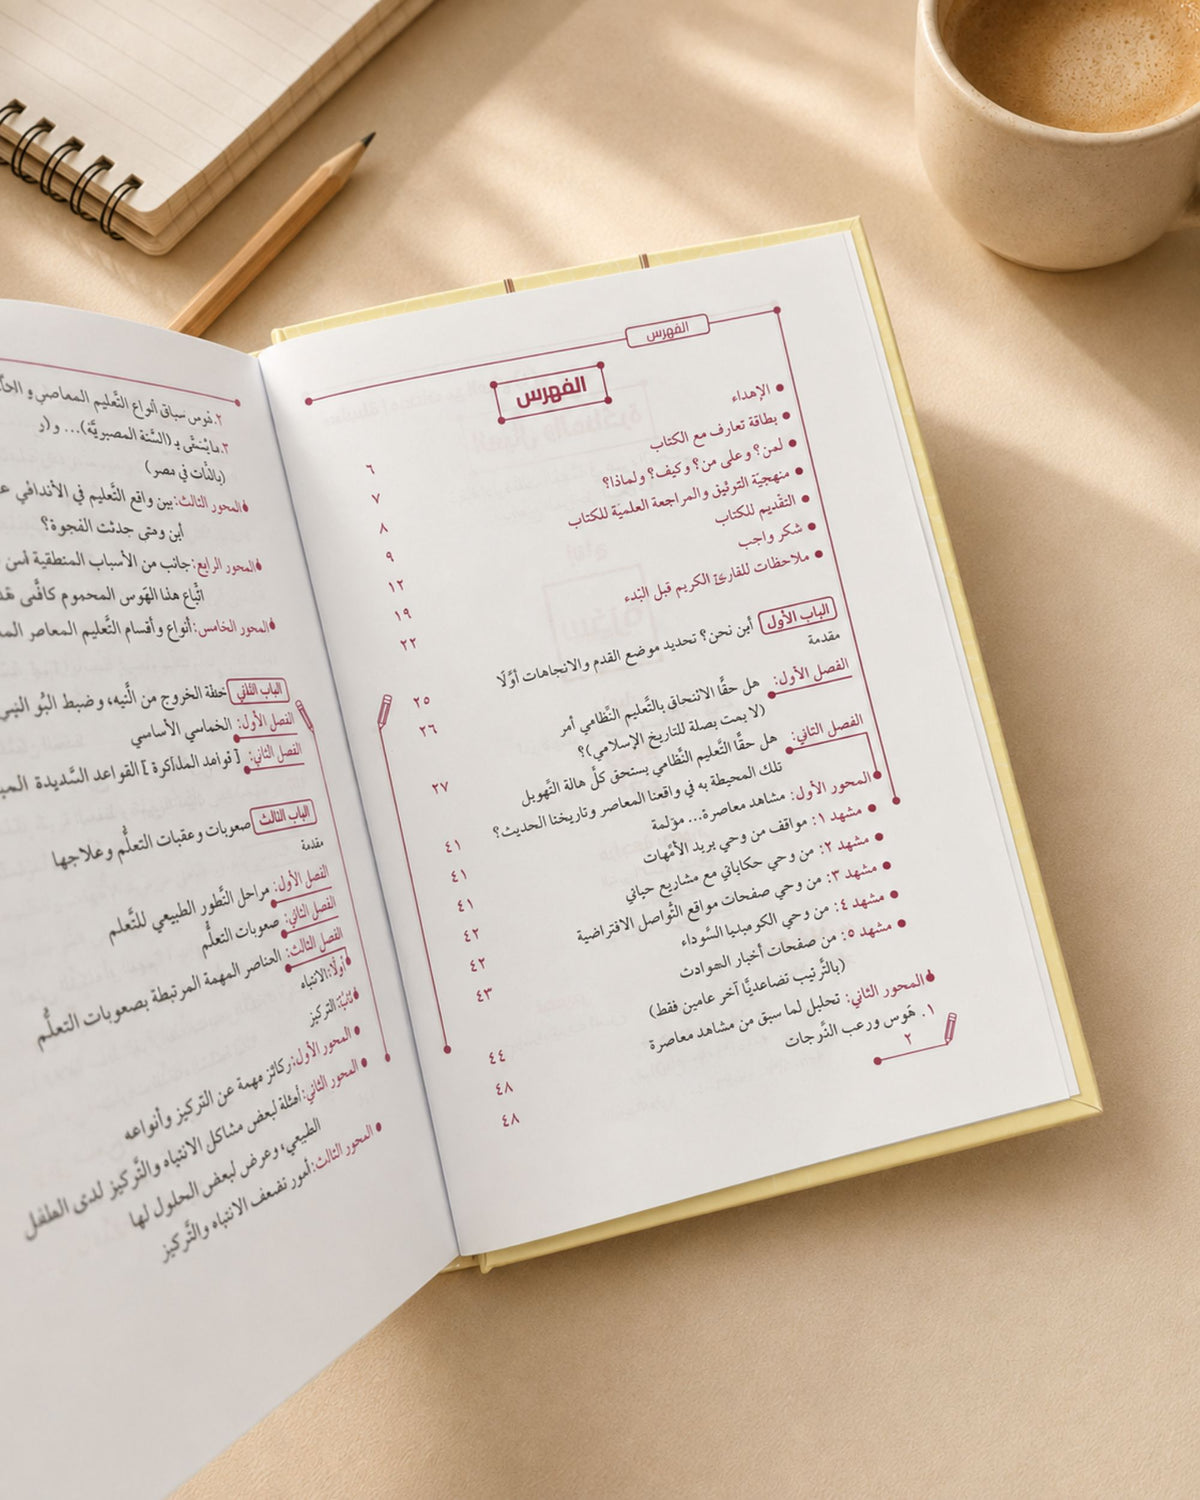 الفهرس
الفهرس
الإهداء
٦
بطاقة تعارف مع الكتاب
٧
لمن؟ وعلى من؟ وكيف؟ ولماذا؟
٨
منهجيّة التوثيق والمراجعة العلميّة للكتاب
٩
التقديم للكتاب
١٢
شكر واجب
١٩
ملاحظات للقارئ الكريم قبل البَدء
٢٢
الباب الأول أين نحن؟ تحديد موضع القدم والاتجاهات أوَّلًا
٢٥
مقدمة
٢٦
الفصل الأول: هل حقًّا الالتحاق بالتَّعليم النِّظامي أمر
(لا يمت بصلة للتاريخ الإسلامي)؟
٢٧
الفصل الثاني: هل حقًّا التَّعليم النِّظامي يستحق كلَّ هالة التَّهويل
تلك المحيطة به في واقعنا المعاصر وتاريخنا الحديث؟
٤١
المحور الأول: مشاهد معاصرة... مؤلمة
٤١
مشهد ١: مواقف من وحي بريد الأمَّهات
٤١
مشهد ٢: من وحي حكاياتي مع مشاريع حياتي
٤٢
مشهد ٣: من وحي صفحات مواقع التَّواصل الافتراضية
٤٢
مشهد ٤: من وحي الكوميديا السَّوداء
٤٣
مشهد ٥: من صفحات أخبار الحوادث
(بالتَّرتيب تصاعديًّا آخر عامين فقط)
٤٤
المحور الثاني: تحليل لما سبق من مشاهد معاصرة
٤٨
١. هَوس ورعب الدَّرجات
٤٨
٢
٢. هوس سباق أنواع التَّعليم المعاصر و
٣. ما يُسَمَّى بـ (السَّنة المصيريَّة)... و(
(بالذَّات في مصر)
المحور الثالث: بين واقع التَّعليم في
أين ومتى حدثت الفجوة؟
المحور الرابع: جانب من الأسباب المنطقية
اتِّباع هذا الهَوس المحموم
المحور الخامس: أنواع وأقسام التَّعليم المعاصر
الباب الثاني خطة الخروج من التِّيه، وضبط
الفصل الأول: الخماسي الأساسي
الفصل الثاني: [قواعد المذاكرة] القواعد السَّديدة
الباب الثالث صعوبات وعقبات التعلُّم وعلاجها
مقدمة
الفصل الأول: مراحل التَّطور الطبيعي للتَّعلم
الفصل الثاني: صعوبات التعلُّم
الفصل الثالث: العناصر المهمة المرتبطة بصعوبات التعلُّم
أولًا: الانتباه
ثانيًا: التركيز
المحور الأول: ركائز مهمة عن التركيز وأنواعه
المحور الثاني: أمثلة لبعض مشاكل الانتباه والتَّركيز لدى الطفل
الطبيعي، وعرض لبعض الحلول لها
المحور الثالث: أمور تضعف الانتباه والتَّركيز